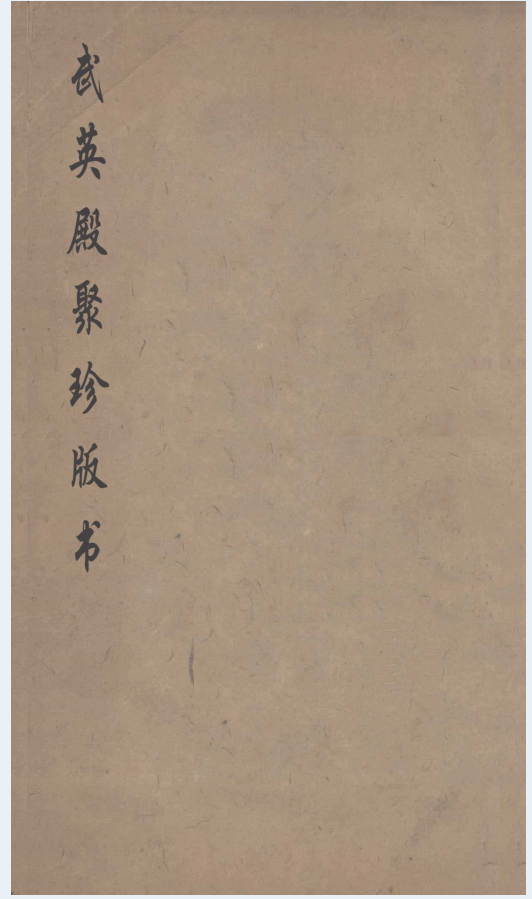 武英殿聚珍版书